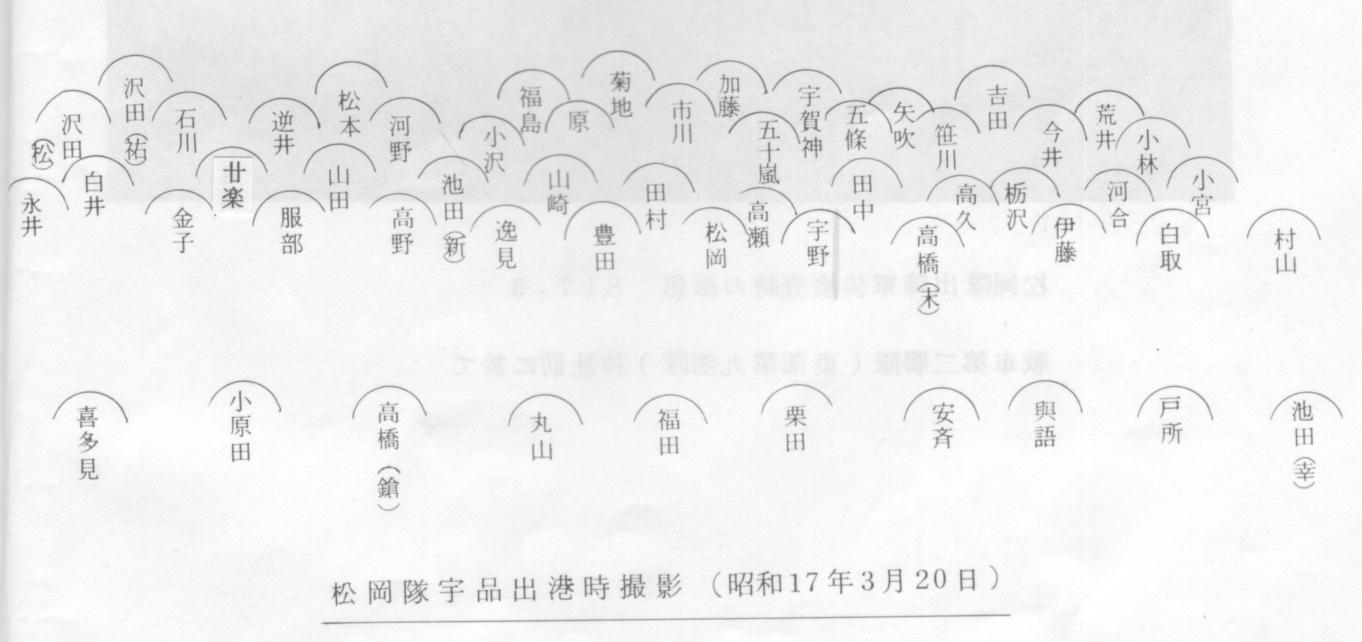 沢田（祐）
沢田（松）
石川
逆井
松本
河野
小沢
福島
原
菊地
市川
加藤
五十嵐
宇賀神
五條
矢吹
笹川
吉田
今井
荒井
小林
小宮
永井
白井
金子
廿楽
服部
山田
高野
池田（新）
逸見
山崎
豊田
田村
松岡
高瀬
宇野
田中
高橋（末）
高久
栃沢
伊藤
河合
白取
村山
喜多見
小原田
高橋（鎗）
丸山
福田
栗田
安斉
與語
戸所
池田（幸）
松岡隊宇品出港時撮影（昭和17年3月20日）
松岡隊出陣軍装検査時の撮影　S17.3
戦車第二聯隊（東部第九部隊）神社前に於て